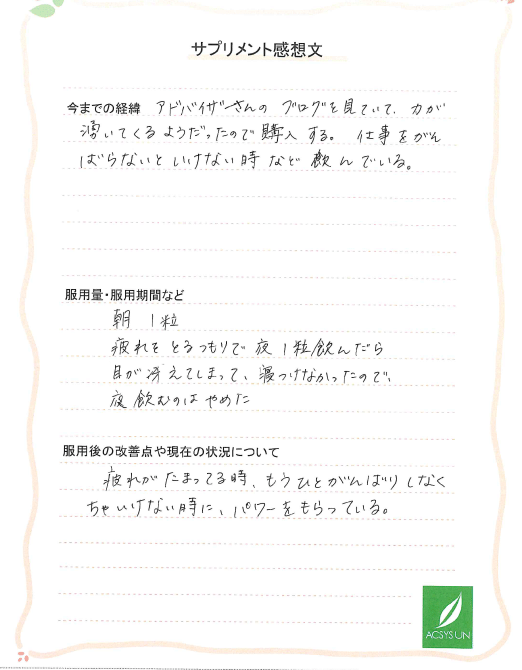 サプリメント感想文
今までの経緯 アドバイザーさんの ブログを見ていて、力が
湧いてくるようだったので購入する。 仕事をがん
ばらないといけない時など飲んでいる。
服用量・服用期間など
朝 1粒
疲れをとるつもりで夜1粒飲んだら
目が冴えてしまって、寝つけなかったので、
夜飲むのはやめた
服用後の改善点や現在の状況について
疲れがたまってる時、もうひとがんばりしなく
ちゃいけない時に、パワーをもらっている。
ACSYSUN